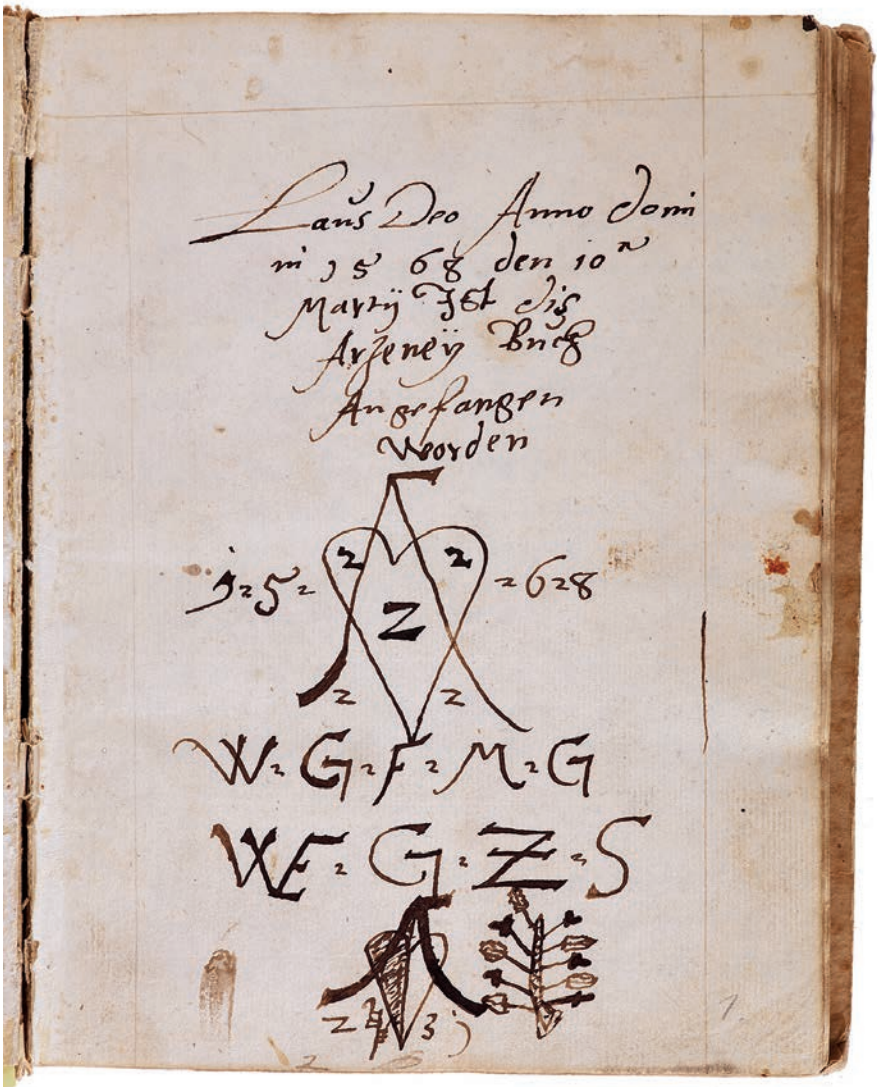 Laus Deo Anno domi
ni 1568 den 10
Martÿ Ist dis
Arzeneÿ Buch
Angefangen
Worden
2 2
1 2 5 2 2 6 2 8
Z
2 2
W 2 G 2 F 2 M 2 G
WE 2 G 2 Z 2 S